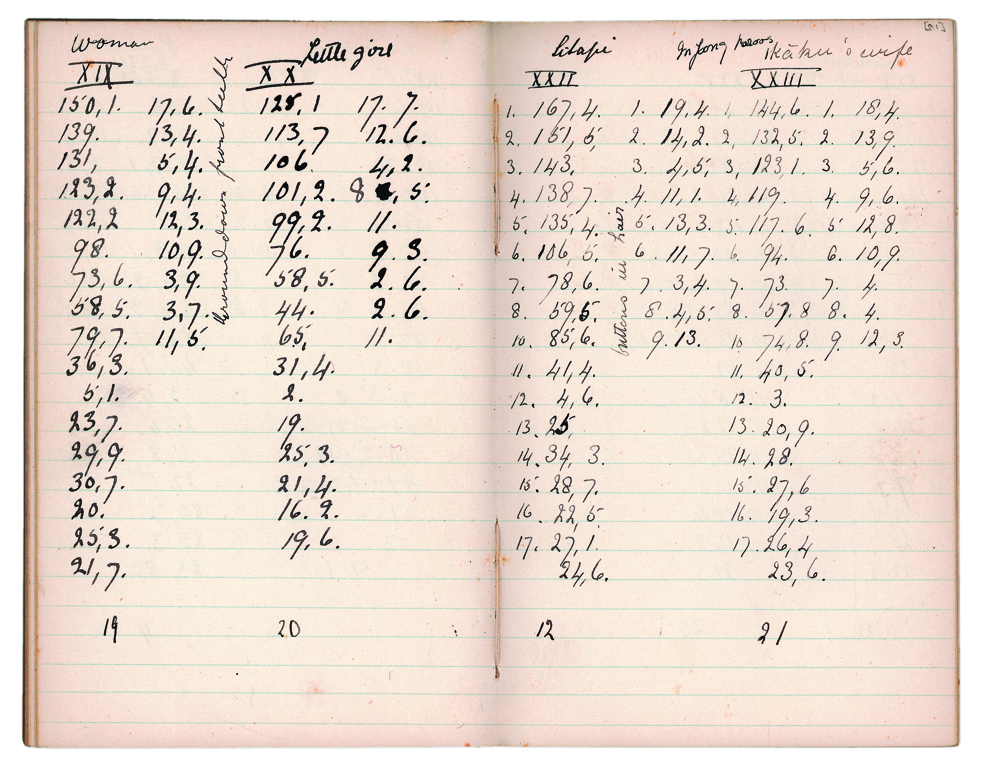 [61]
Woman
XIX
150,1. 17,6.
139. 13,4.
131, 5,4.
123,2. 9,4.
122,2 12,3.
98. 10,9.
73,6. 3,9.
58,5. 3,7.
79,7. 11,5.
36,3.
5,1.
23,7.
29,9.
30,7.
20.
25,3.
21,7.
19
Ground down front teeth
Little girl
XX
125,1 17.7.
113,7 12.6.
106. 4,2.
101,2. 8,5.
99,2. 11.
76. 9.3.
58,5. 2.6.
44. 2.6.
65, 11.
31,4.
2.
19.
25,3.
21,4.
16.2.
19,6.
20
XXII
1. 167,4. 1. 19,4.
2. 151,5. 2. 14,2.
3. 143, 3. 4,5.
4. 138,7. 4. 11,1.
5. 135,4. 5. 13,3.
6. 106,5. 6. 11,7.
7. 78,6. 7. 3,4.
8. 59,5. 8. 4,5.
10. 85,6. 9. 13.
11. 41,4.
12. 4,6.
13. 25,
14. 34,3.
15. 28,7.
16. 22,5
17. 27,1.
24,6.
12
buttons in hair
's wife
XXIII
1, 144,6. 1. 18,4.
2, 132,5. 2. 13,9.
3, 123,1. 3. 5,6.
4, 119. 4. 9,6.
5. 117.6. 5 12,8.
6. 94. 6. 10,9.
7. 73. 7. 4.
8. 57.8 8. 4.
10. 74,8. 9. 12,3.
11. 40,5.
12. 3.
13. 20,9.
14. 28.
15. 27,6
16. 19,3.
17. 26,4
23,6.
21